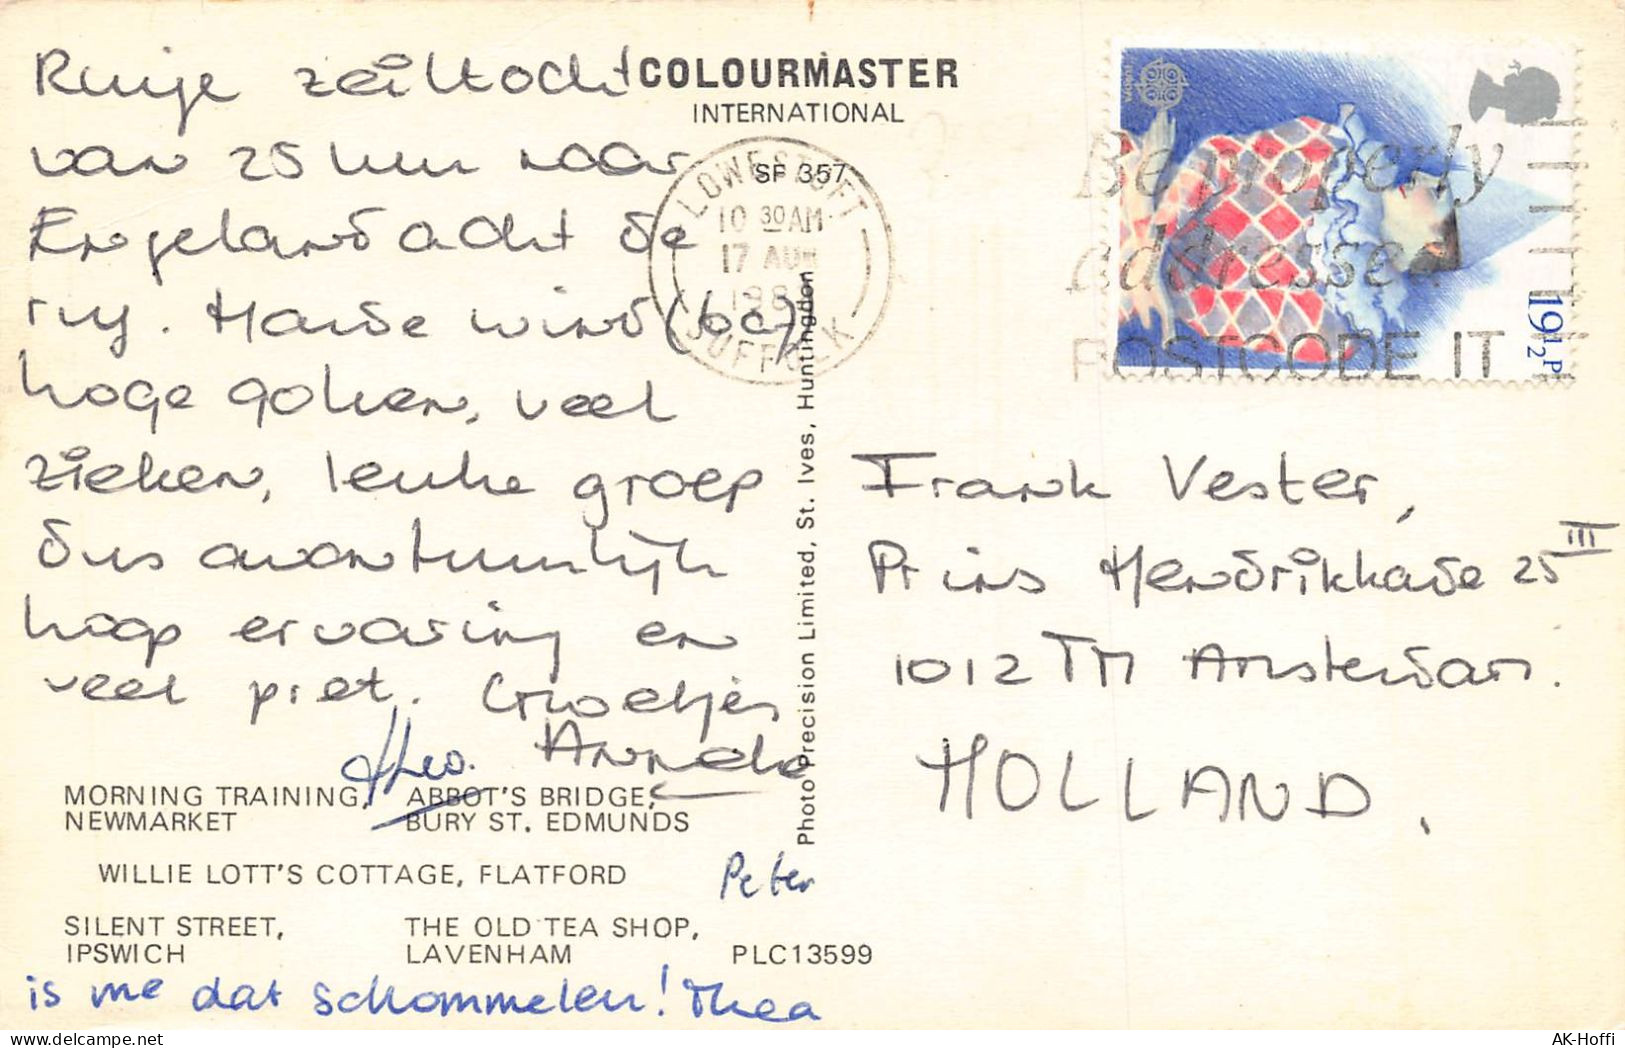 Ruije zeiltocht
van 25 uur naar
Engeland acht de
rug. Harde wind (6 a 7)
hoge golven, veel
zieken, leuke groep
dus avontuurlijk
hoop ervaring en
veel pret. Groetjes
Anneke
Theo.
Peter
is me dat schommelen! Thea
COLOURMASTER
INTERNATIONAL
SF 357
LOWESTOFT
10 30 AM
17 AUG
SUFFOLK
Be properly
addressed
POSTCODE IT
EUROPA
19½P
Frank Vester,
Prins Hendrikkade 25 III
1012 TM Amsterdam.
HOLLAND.
Photo Precision Limited, St. Ives, Huntingdon
MORNING TRAINING,
NEWMARKET
ABBOT'S BRIDGE,
BURY ST. EDMUNDS
WILLIE LOTT'S COTTAGE, FLATFORD
SILENT STREET,
IPSWICH
THE OLD TEA SHOP,
LAVENHAM
PLC13599
AK-Hoffi